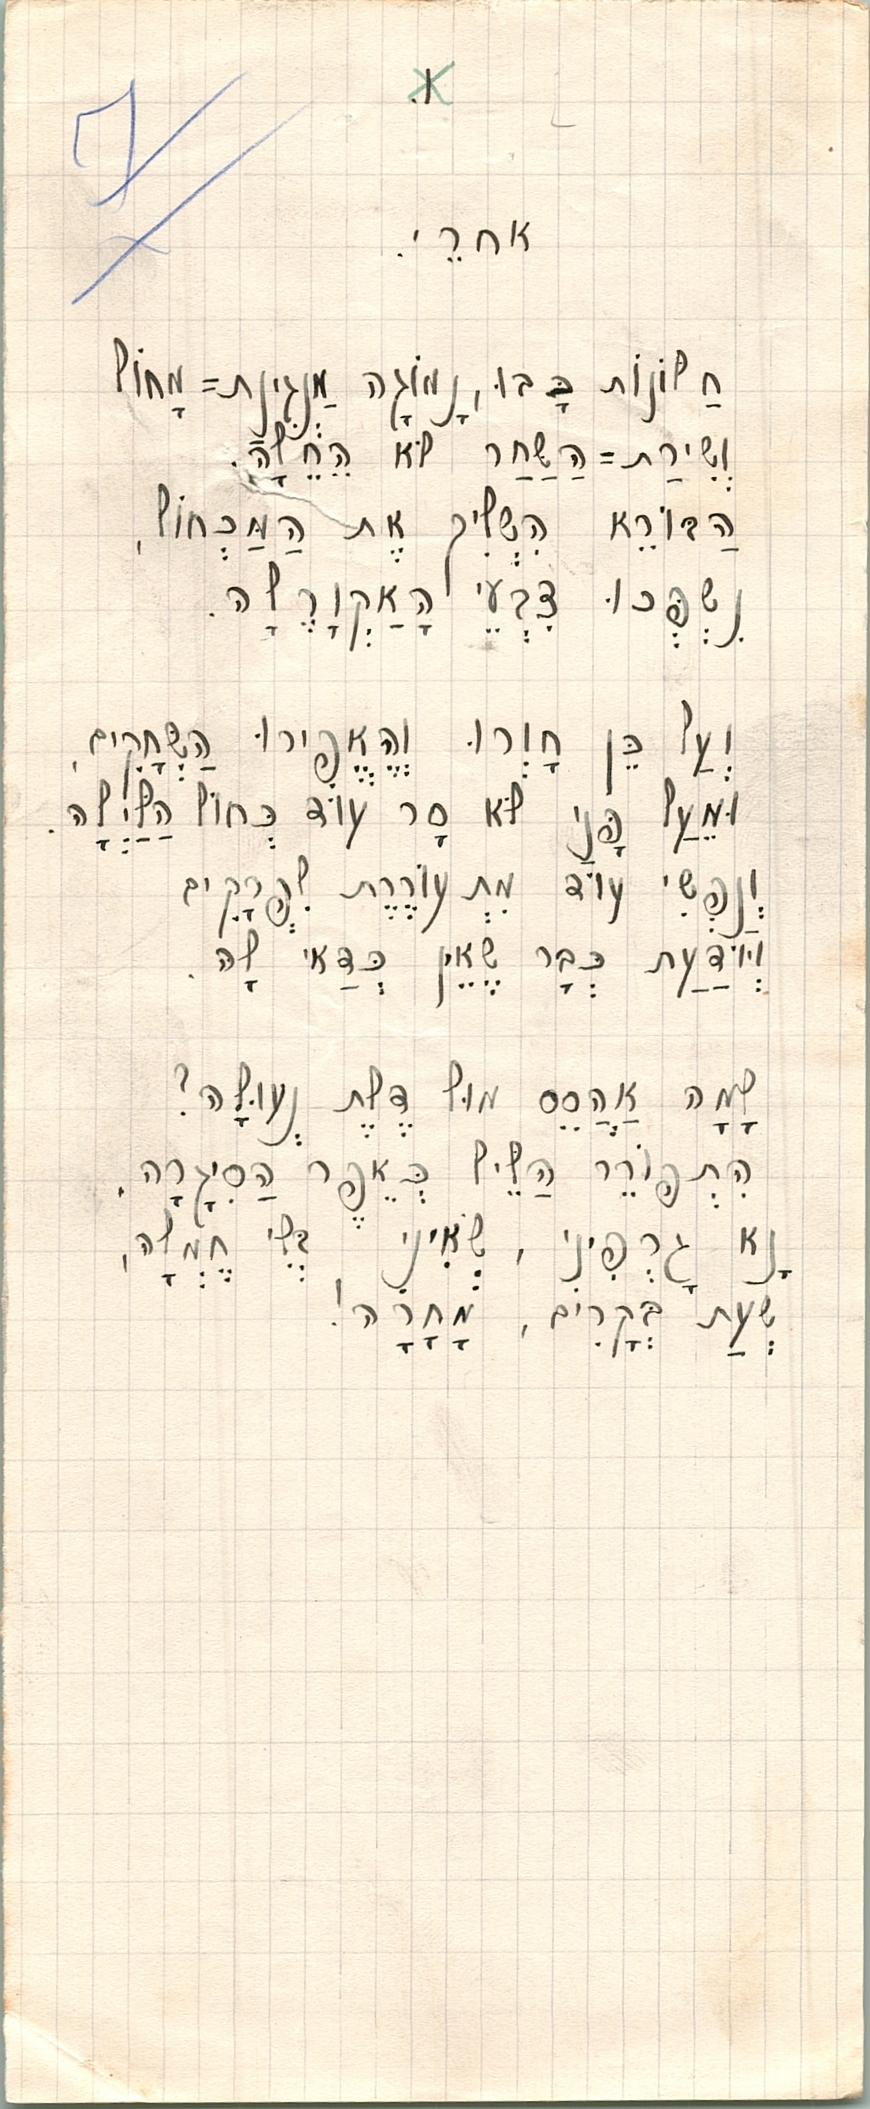 1.
אחרֵי.
חַלוֹנוֹת כָּבוּ, נָמוֹגָה מַנְגִּינַת=מָחוֹל
וְשִׁירַת=הַשַּׁחַר לֹא הֵחֵלָּה.
הַבּוֹרֵא הִשְׁלִיךְ אֶת הַמַּכְחוֹל,
נִשְׁפְּכוּ צִבְעֵי הָאַקְוָרֶלָה.
וְעַל כֵּן חָוְרוּ וְהֶאֱפִירוּ הַשְּׁחָקִים,
וּמֵעַל פָּנַי לֹא סָר עוֹד כְּחוֹל הַלַּיְלָה.
וְנַפְשִׁי עוֹד מִתְעוֹרֶרֶת לִפְרָקִים
וְיוֹדַעַת כְּבָר שֶׁאֵין כְּדַאי לָהּ.
לָמָּה אֲהַסֵּס מוּל דֶּלֶת נְעוּלָה?
הִתְפּוֹרֵר הַלֵּיל כְּאֵפֶר הַסִּיגָרָה.
נָא גָרְפִינִי, שְׂאִינִי בְּלִי חֶמְלָה,
שְׁעַת בְּקָרִים, מָחֳרָה!